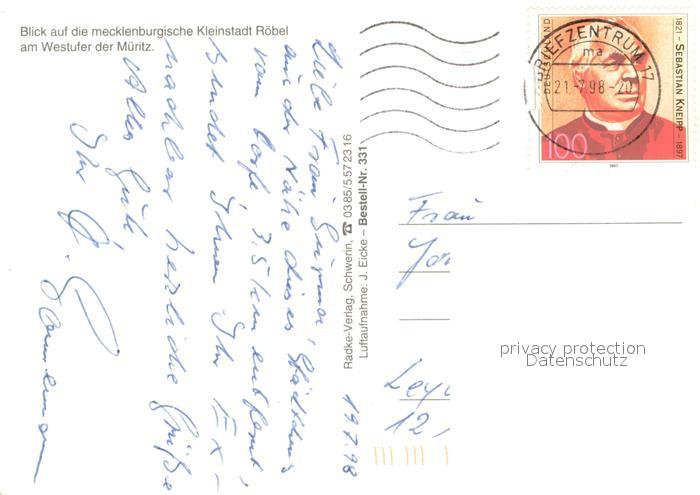 Blick auf die mecklenburgische Kleinstadt Röbel
am Westufer der Müritz.
Liebe Frau
aus der Nähe dieses Städtchens
vom Dorfe 7.5 km entfernt,
sendet Ihnen Ihr Ex-
nachbar herzliche Grüße
Alles Gute
Ihr
19.7.98
Radke-Verlag, Schwerin, ☎ 0385/5572316
Luftaufnahme: J. Eicke – Bestell-Nr. 331
BRIEFZENTRUM 17
ma
21.-7.98-20
DEUTSCHLAND
1821 - SEBASTIAN KNEIPP - 1897
100
1997
Frau
12,
privacy protection
Datenschutz